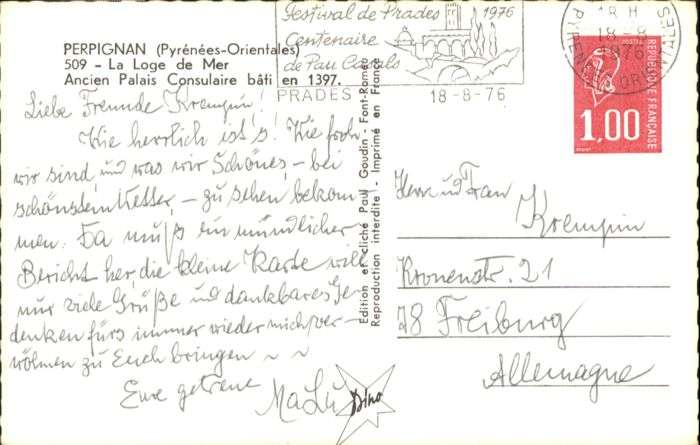 PERPIGNAN (Pyrénées-Orientales)
509 - La Loge de Mer
Ancien Palais Consulaire bâti en 1397.
Festival de Prades 1976
Centenaire
de Pau Casals
PRADES 18-8-76
18 H
18-8
1976
PYRENEES ORIENTALES
POSTES
REPUBLIQUE FRANÇAISE
1,00
Liebe Freunde Krempin!
Wie herrlich ist's! Wie froh
wir sind, und was wir Schönes, - bei
schönstem Wetter, - zu sehen bekom
men. Da muß ein mündlicher
Bericht her, die kleine Karte will
nur viele Grüße und dankbares Ge
denken fürs immer wieder mich ver-
wöhnen zu Euch bringen ~ ~
Eure getreue
MaLu
Dino
Edition et cliché Paul Goudin - Font-Romeu
Reproduction interdite - Imprimé en France
Herr und Frau
Krempin
Kronenstr. 21
78 Freiburg
Allemagne